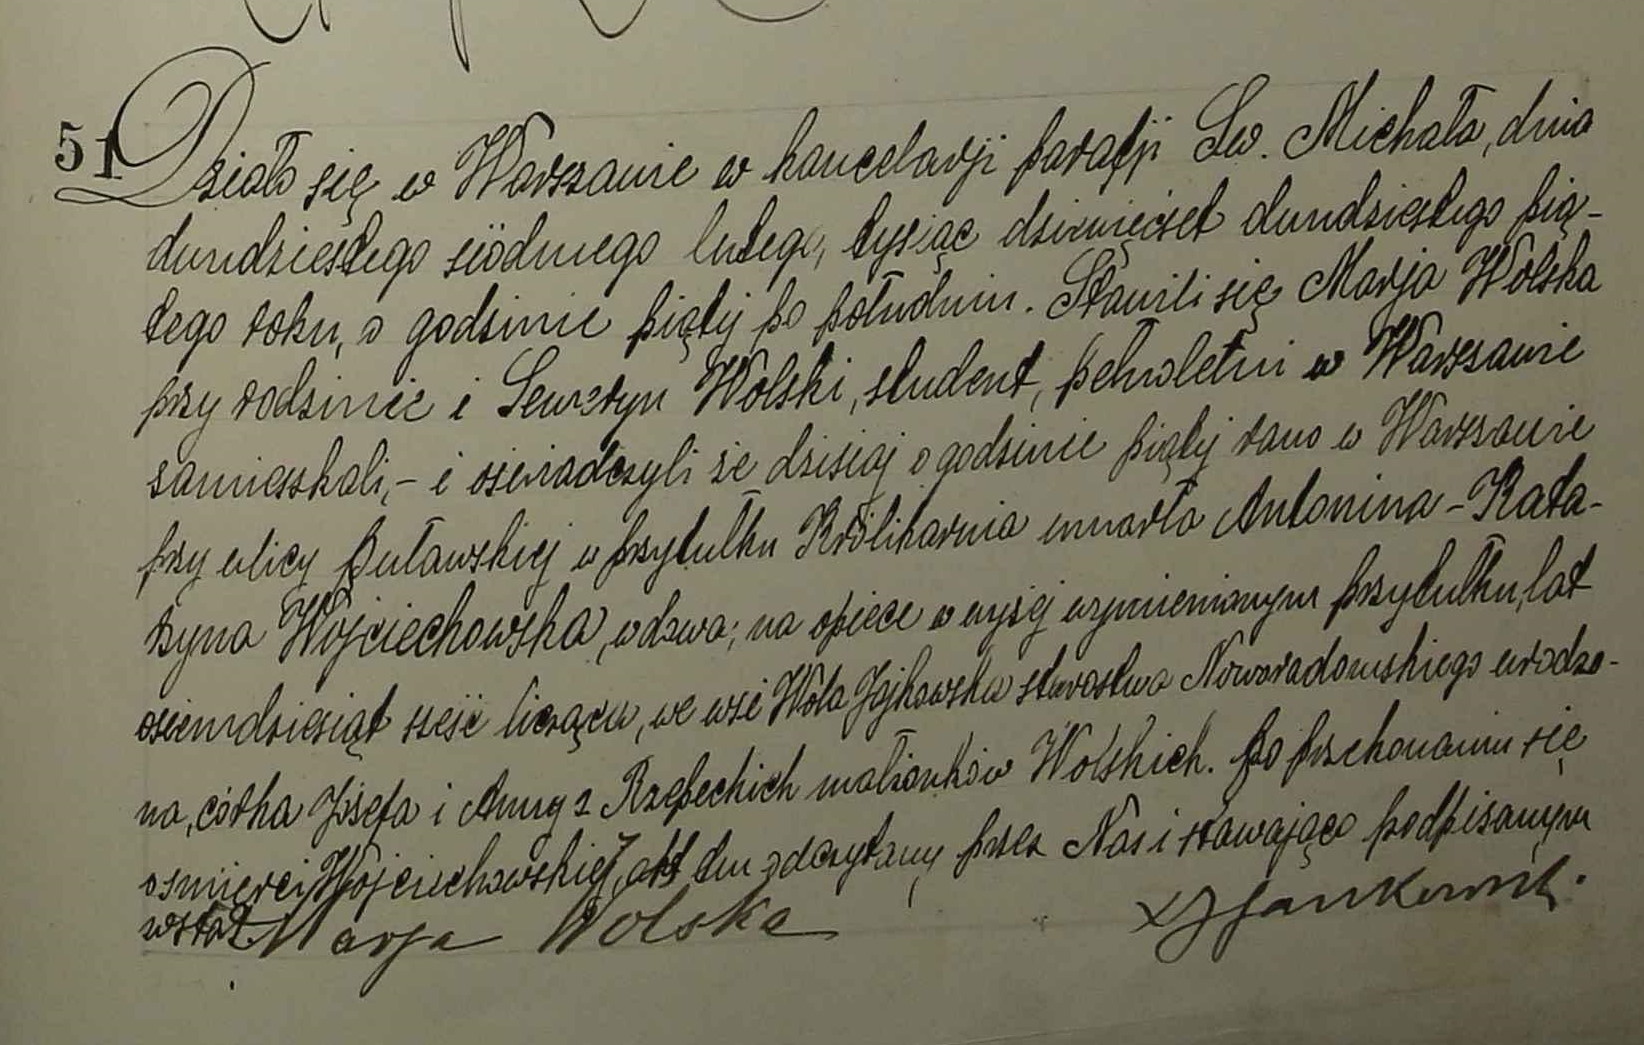 51 Działo się w Warszawie w kancelarji parafji Św. Michała, dnia
dwudziestego siódmego lutego, tysiąc dziewięćset dwudziestego pią-
tego roku, o godzinie piątej po południu. Stawili się Marja Wolska
przy rodzinie i Seweryn Wolski, student, pełnoletni w Warszawie
zamieszkali,- i oświadczyli że dzisiaj o godzinie piątej rano w Warszawie
przy ulicy Puławskiej w przytułku Królikarnia umarła Antonina-Kata-
rzyna Wojciechowska, wdowa; na opiece w wyżej wymienionym przytułku, lat
osiemdziesiąt sześć licząca, we wsi Wola Jajkowska starostwa Noworadomskiego urodzo-
na, córka Józefa i Anny z Rzepeckich małżonków Wolskich. Po przekonaniu się
o śmierci Wojciechowskiej, akt ten odczytany przez Nas i stawającą podpisanym
został. Marja Wolska